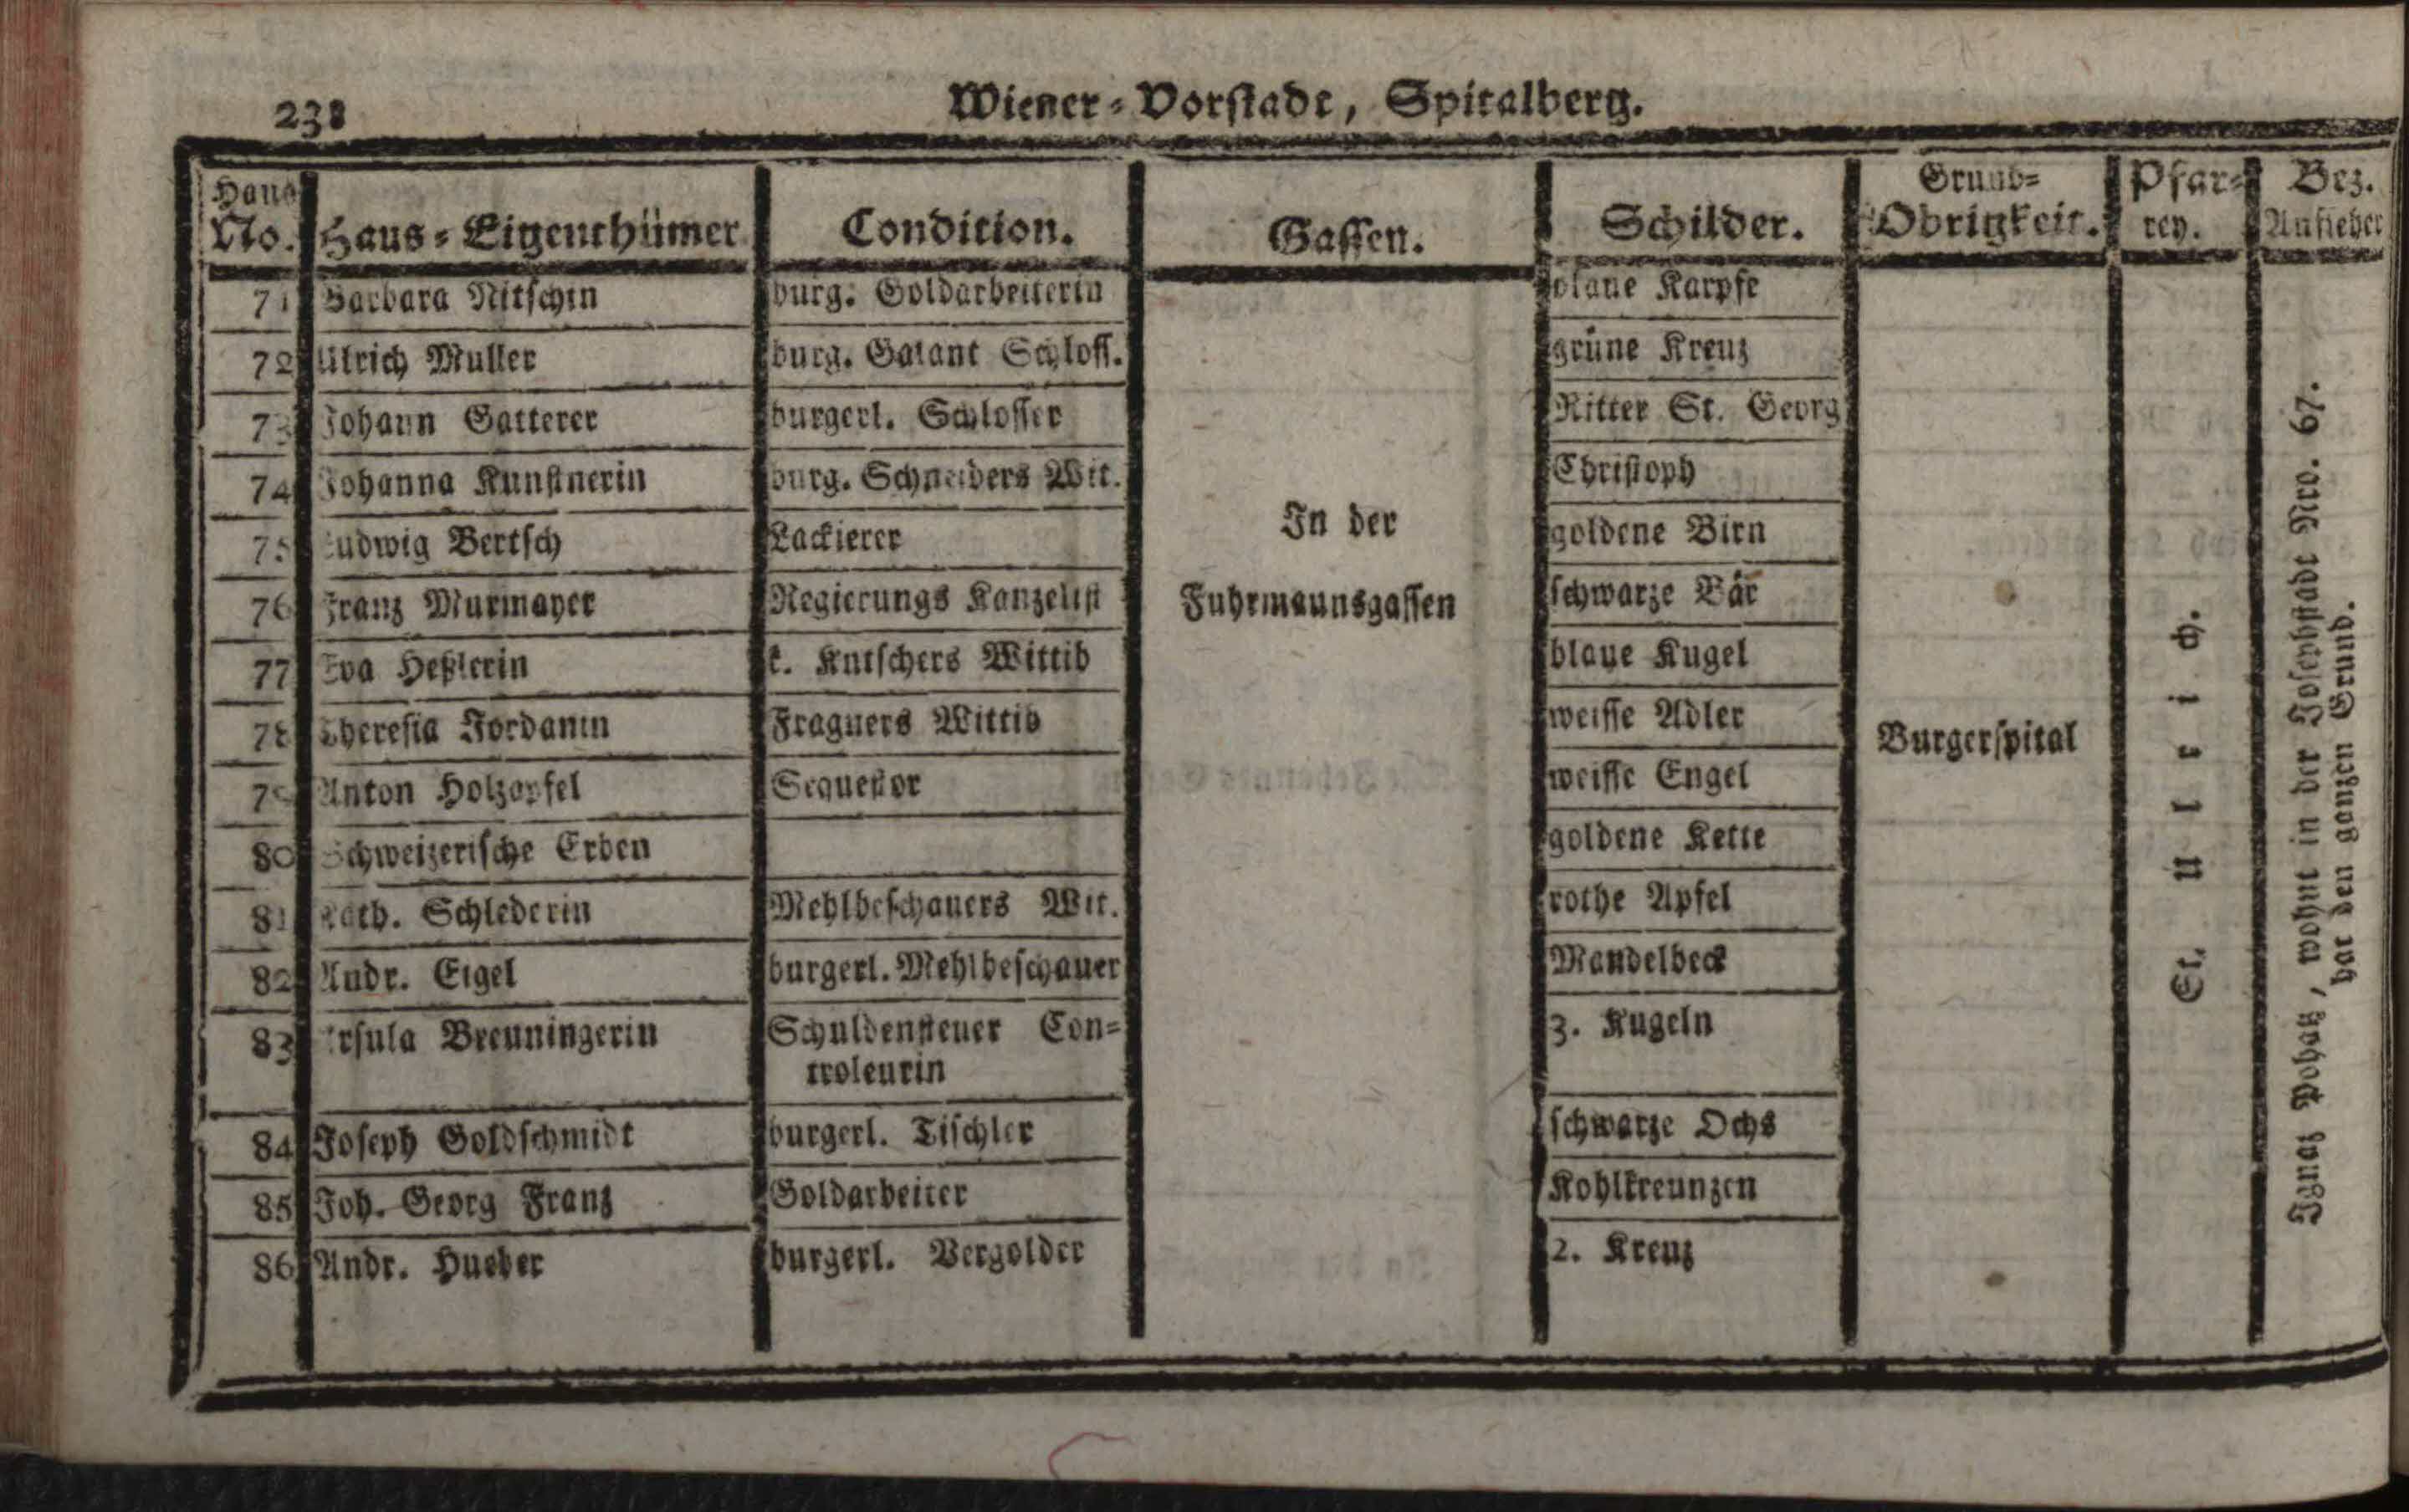 238
Wiener-Vorstadt, Spitalberg.
Haus No. Haus-Eigenthümer Condition. Gassen. Schilder. Grund-Obrigkeit. Pfar-rey. Bez. Aufseher
71 Barbara Nitschin burg. Goldarbeiterin blaue Karpfe
72 Ulrich Muller burg. Galant Schloss. grüne Kreuz
73 Johann Gatterer burgerl. Schlosser Ritter St. Georg
74 Johanna Kunstnerin burg. Schneiders Wit. Christoph
75 Ludwig Bertsch Lackierer goldene Birn
76 Franz Murmayer Regierungs Kanzelist schwarze Bär
77 Eva Heßlerin k. Kutschers Wittib blaue Kugel
78 Theresia Jordanin Fragners Wittib weisse Adler
79 Anton Holzapfel Sequestor weisse Engel
80 Schweizerische Erben goldene Kette
81 Kath. Schlederin Mehlbeschauers Wit. rothe Apfel
82 Andr. Eigel burgerl. Mehlbeschauer Mandelbeck
83 Ursula Breuningerin Schuldensteuer Con- 3. Kugeln
troleurin
84 Joseph Goldschmidt burgerl. Tischler schwarze Ochs
85 Joh. Georg Franz Goldarbeiter Kohlkreunzen
86 Andr. Hueber burgerl. Vergolder 2. Kreuz
In der
Fuhrmannsgassen
Burgerspital
St. Ulrich.
Ignaz Pohatz, wohnt in der Josephstadt Nro. 67.
hat den ganzen Grund.